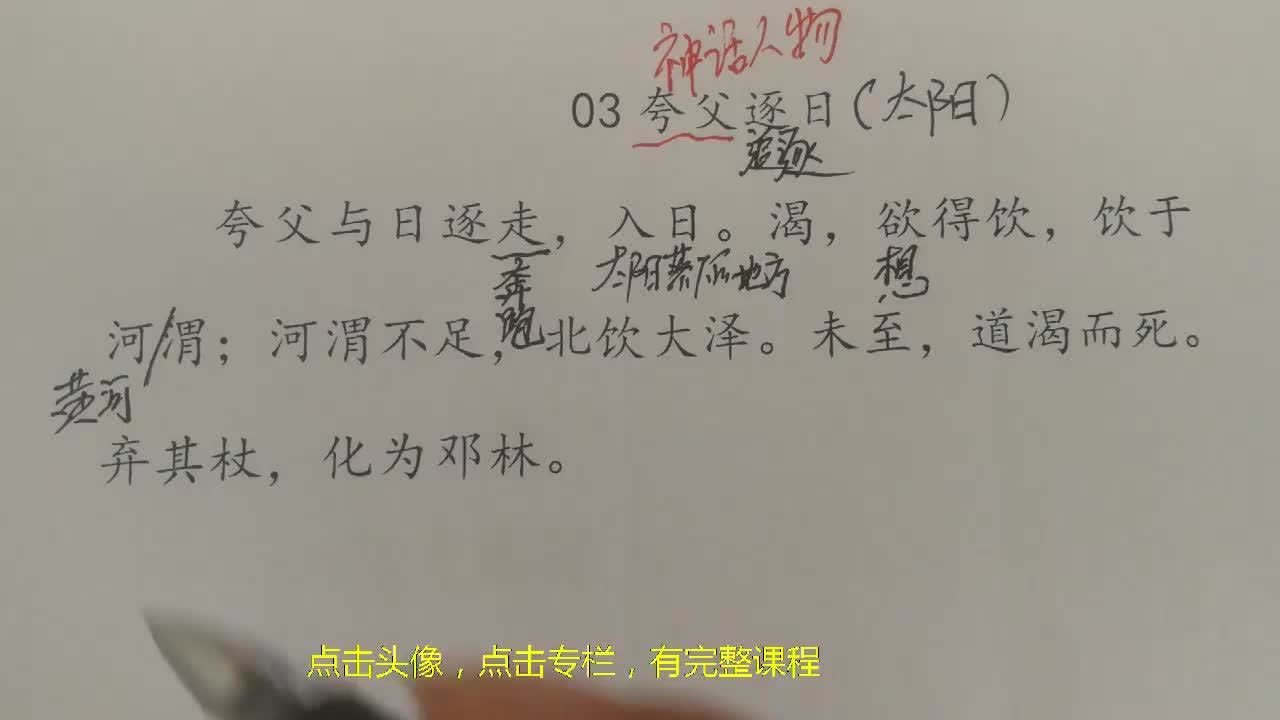 神话人物
03 夸父逐日(太阳)
追逐
夸父与日逐走，入日。渴，欲得饮，饮于
奔跑
太阳落下的地方
想
河/渭；河渭不足，北饮大泽。未至，道渴而死。
黄河
弃其杖，化为邓林。
点击头像，点击专栏，有完整课程